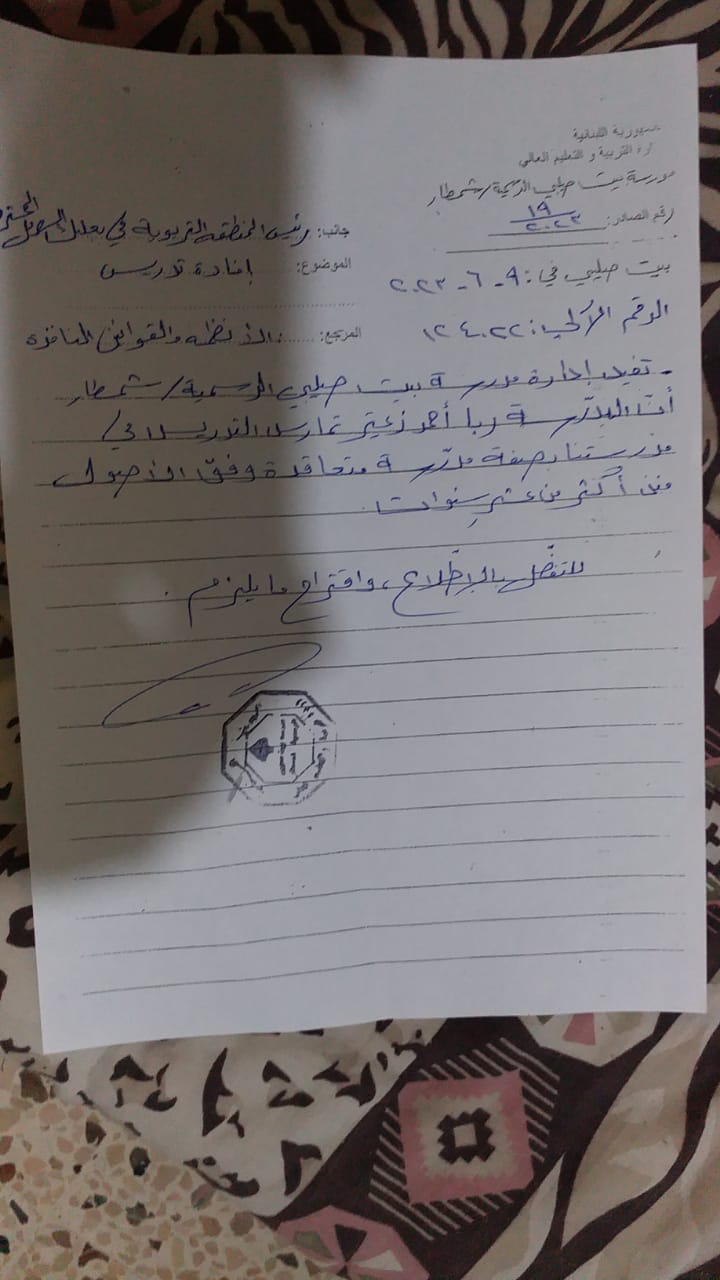 الجمهورية اللبنانية
وزارة التربية و التعليم العالي
مدرسة بيت صليبي الرسمية/شمطار
رقم الصادر: ١٩/٢٠٢٣
جانب: رئيس المنطقة التربوية في بعلبك الهرمل المحترم
الموضوع: إفادة تدريس
بيت صليبي في: ٩-٦-٢٠٢٣
المرجع: الأنظمة والقوانين النافذة
الرقم الآلي: ١٢٤٠٢٢
- تفيد إدارة مدرسة بيت صليبي الرسمية/شمطار
أن المدرّسة ربا أحمد زعيتر تمارس التدريس في/
مدرستنا بصفة مدرّسة متعاقدة وفق الأصول
منذ أكثر من عشر سنوات.
للتفضّل بالإطّلاع، واقتراح ما يلزم.